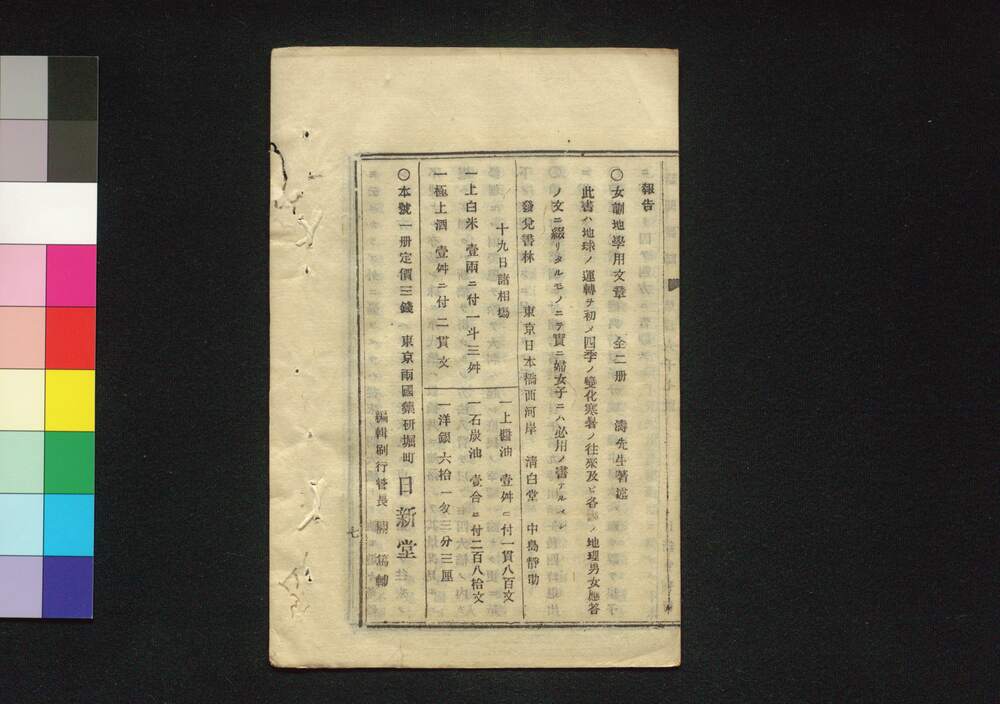 報告
〇女訓地學用文章　全二册　濤先生著述
此書ハ地球ノ運轉ヲ初メ四季ノ變化寒暑ノ往來及ヒ各ノ地理男女應答
ノ文ニ綴リタルモノニテ實ニ婦女子ニハ必用ノ書ナルベシ
發兌書林　東京日本橋西河岸　淸白堂　中島靜助
十九日諸相塲
一上白米　壹兩ニ付一斗三舛
一極上酒　壹舛ニ付二貫文
一上醬油　壹舛ニ付一貫八百文
一石炭油　壹合ニ付二百八拾文
一洋銀六拾一匁三分三厘
〇本號一册定價三錢　東京兩國藥研堀町　日新堂
編輯刷行管長
七